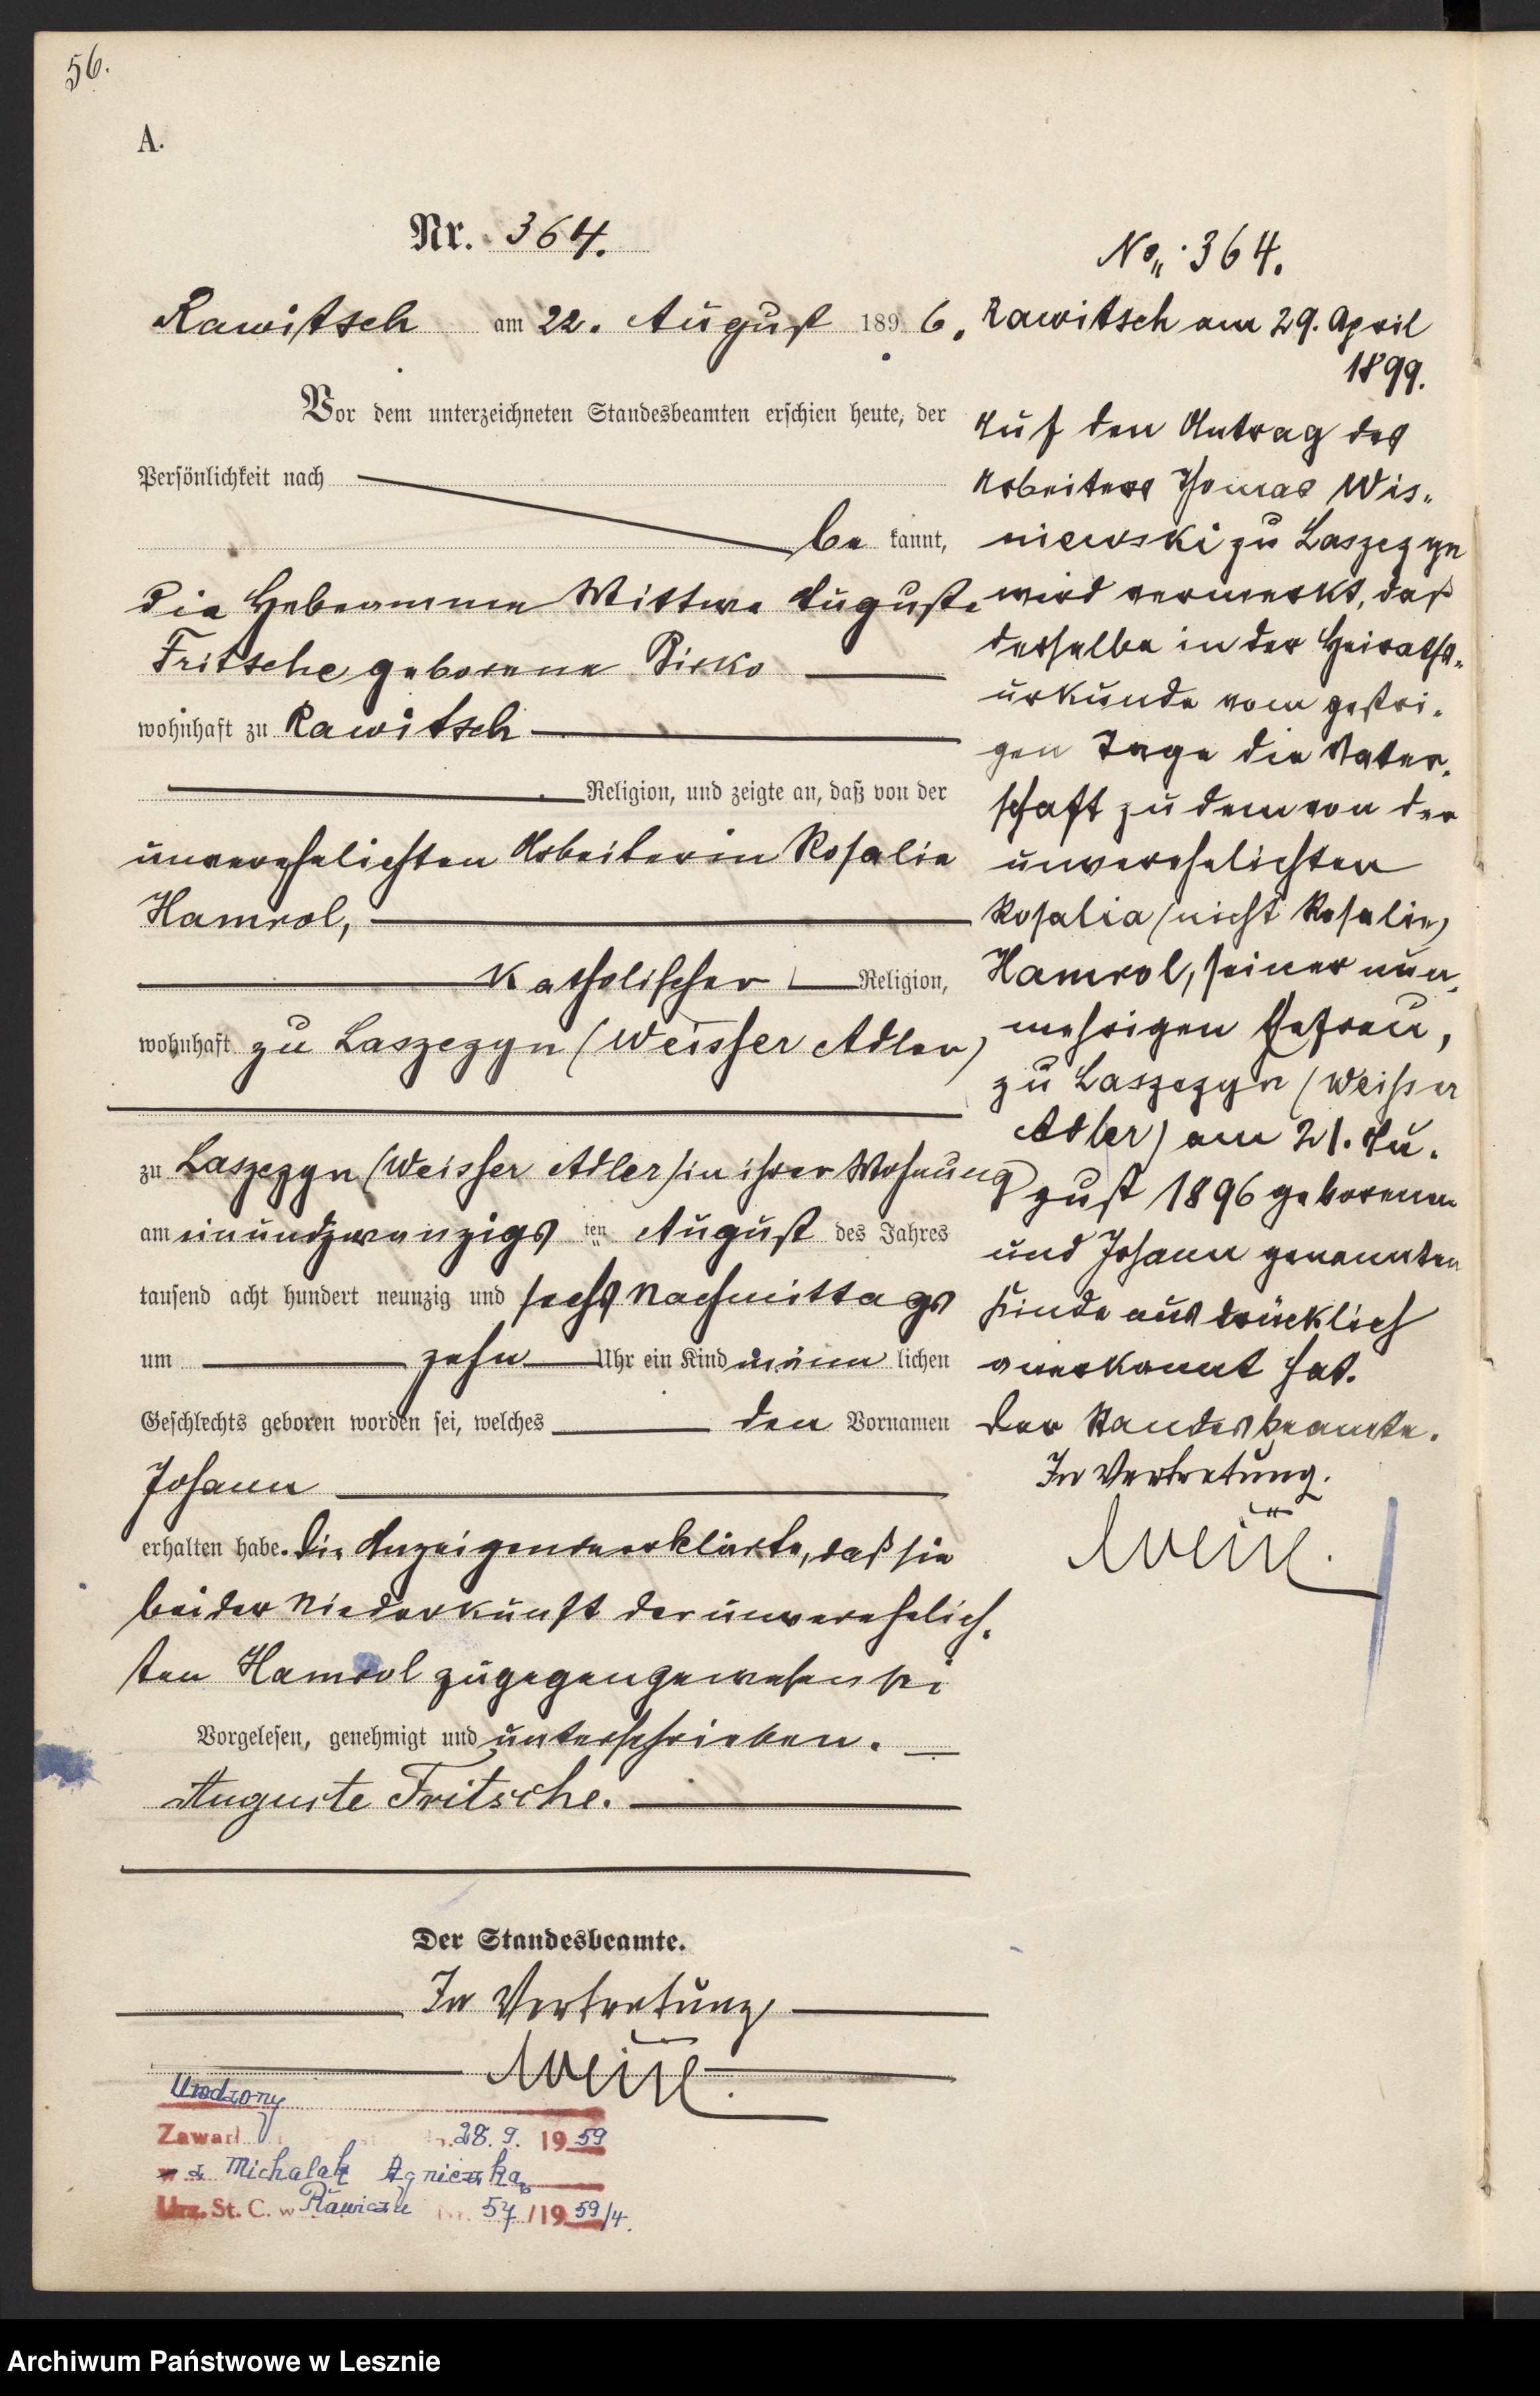 56.
A.
Nr. 364.
Rawitsch am 22. August 1896.
Vor dem unterzeichneten Standesbeamten erschien heute, der
Persönlichkeit nach
be kannt,
die Hebeamme Wittwe Auguste
Fritsche geborene Pirko
wohnhaft zu Rawitsch
Religion, und zeigte an, daß von der
unverehelichten Arbeiterin Rosalie
Hamrol,
katholischer Religion,
wohnhaft zu Laszczyn (Weisser Adler)
zu Laszczyn (Weisser Adler) in ihrer Wohnung
am einundzwanzigs ten August des Jahres
tausend acht hundert neunzig und sechs Nachmittags
um zehn Uhr ein Kind männ lichen
Geschlechts geboren worden sei, welches den Vornamen
Johann
erhalten habe. Die Anzeigende erklärte, daß sie
bei der Niederkunft der unverehelich-
ten Hamrol zugegen gewesen sei
Vorgelesen, genehmigt und unterschrieben.
Auguste Fritsche.
Der Standesbeamte.
In Vertretung
No. 364.
Rawitsch am 29. April
1899.
Auf den Antrag des
Arbeiters Thomas Wis-
niewski zu Laszczyn
wird vermerkt, daß
derselbe in der Heiraths-
urkunde vom gestri-
gen Tage die Vater-
schaft zu dem von der
unverehelichten
Rosalia (nicht Rosalie)
Hamrol, seiner nun-
mehrigen Ehefrau,
zu Laszczyn (Weisser
Adler) am 21. Au-
gust 1896 geborenen
und Johann genannten
Kinde ausdrücklich
anerkannt hat.
Der Standesbeamte.
In Vertretung.
Urodzony
Zawarł 28. 9. 1959
z Michalak Agnieszką
Urz. St. C. w Rawiczu Nr. 57/1959/4.
Archiwum Państwowe w Lesznie